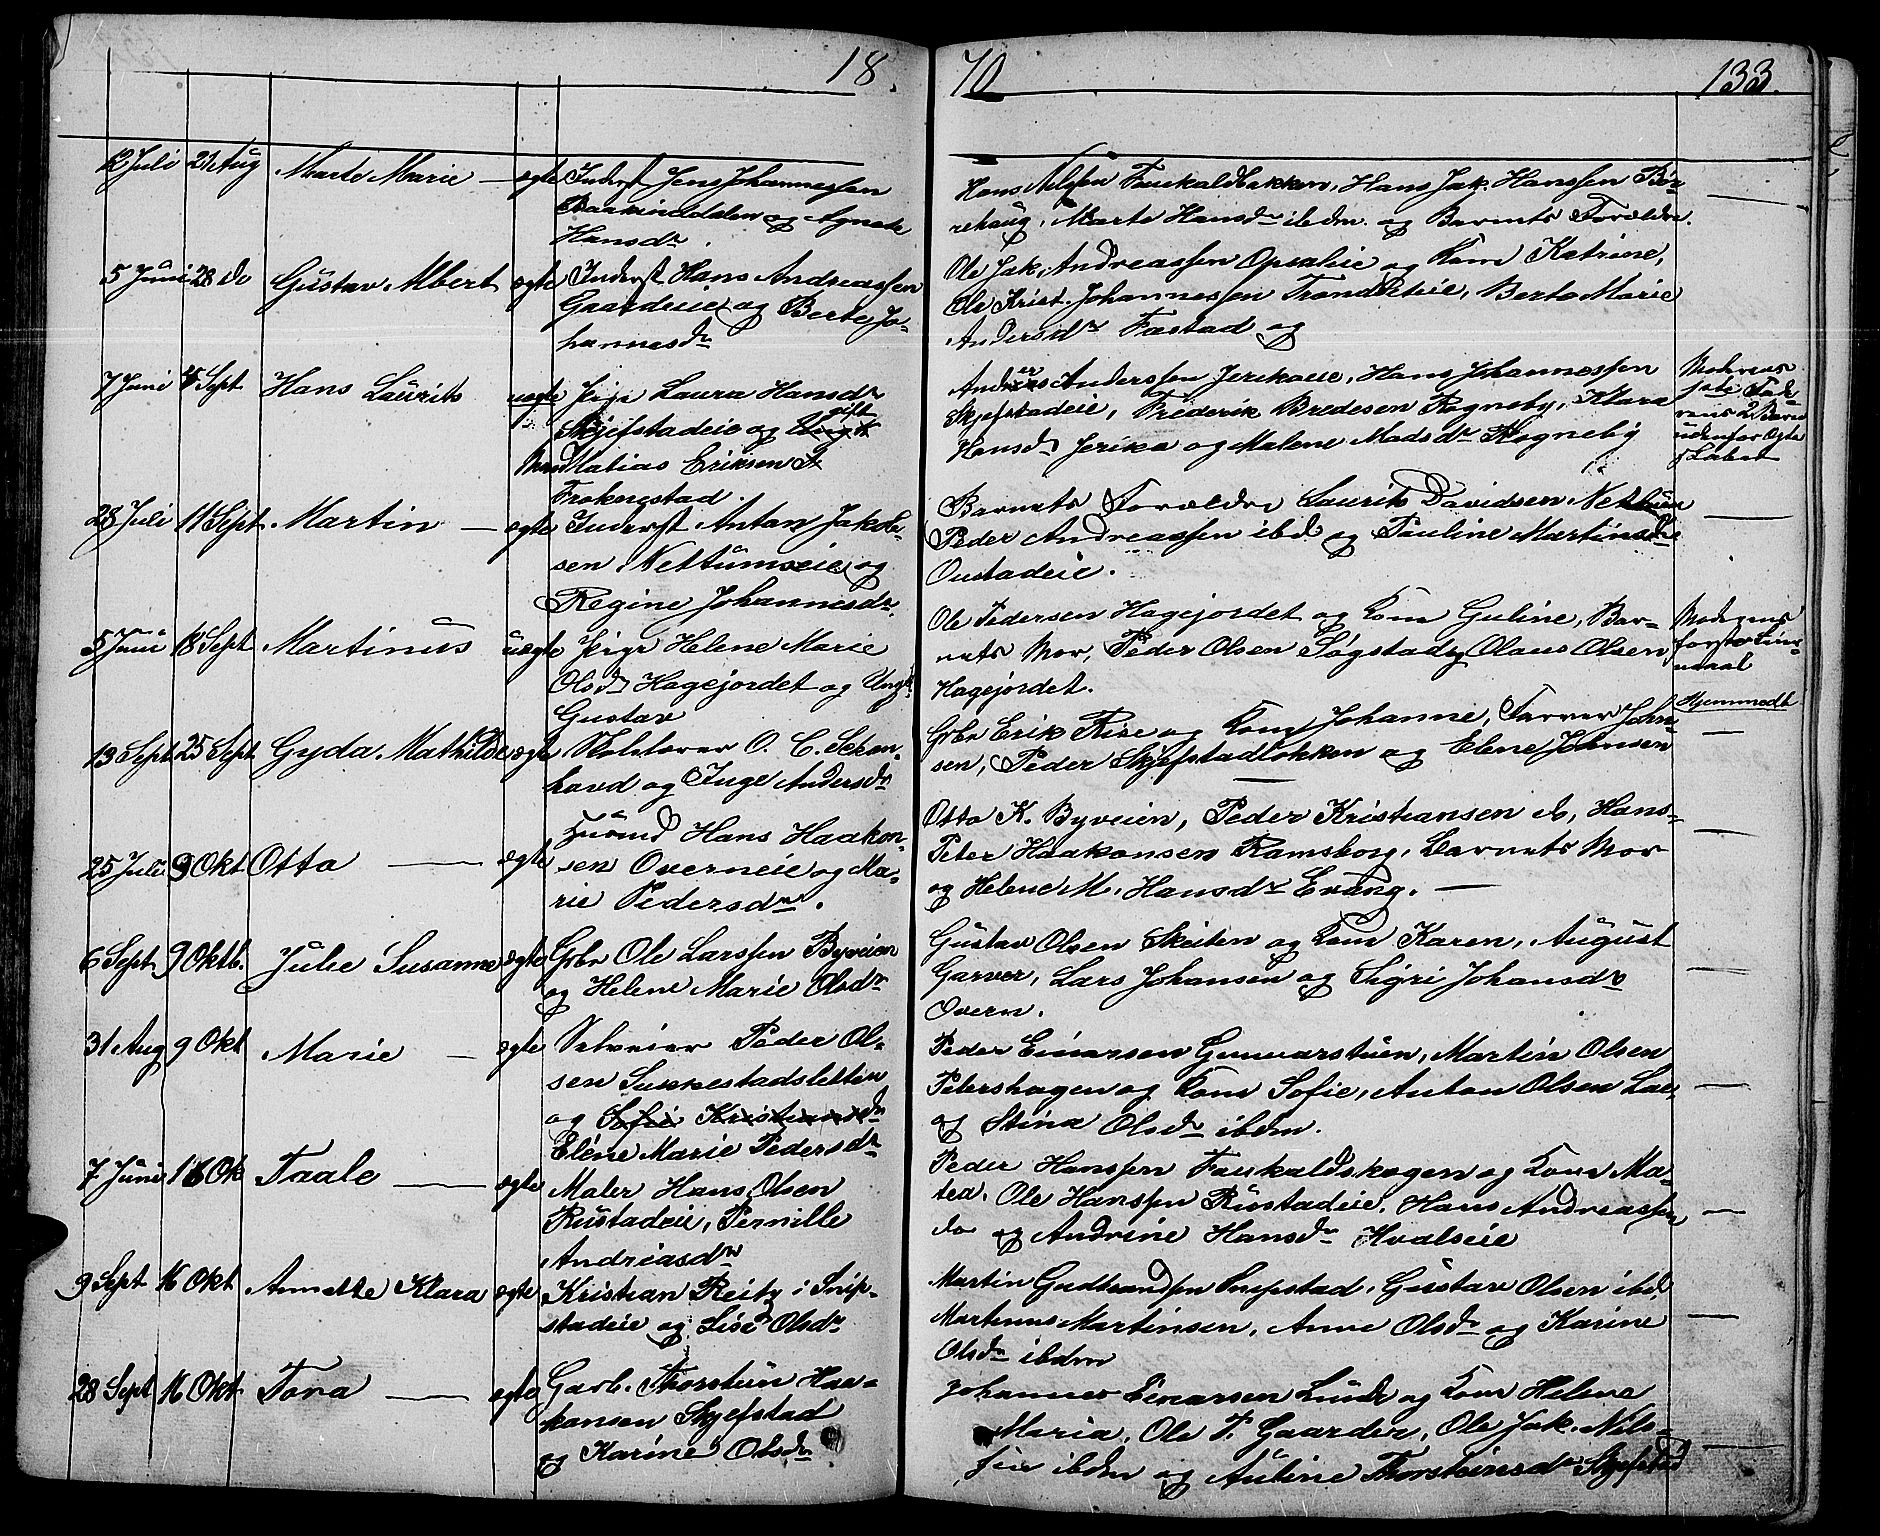 18
70
133.
12 Juli 21 Aug Marte Marie — ægte Inderst Jens Johannessen
Baakinddalen og Agnete
Hansdr.
Hans Nilssen Faukaldbakken, Hans Jak. Hanssen Bør-
rehaug, Marte Hansdr ibdm. og Barnets Forældre.
5 Juni 28 do Gustav Albert ægte Inderst Hans Andreassen
Gaardeie og Berte Jo-
hannesdr
Ole Jak. Andreassen Opsaleie og Kone Katrine,
Ole Krist. Johannessen Trondseteie, Berte Marie
Andersdr Fæstad og
7 Juni 4 Sept Hans Laurits uægte Pige Laura Hansdr
Skjefstadeie og gift
Mand Matias Eriksen
Froknestad.
Anders Anderssen Jerikoeie, Hans Johannessen
Skjefstadeie, Frederik Bredesen Rogneby, Klara
Hansdr Jerika og Malene Madsdr Rogneby
Moderens
1ste Fade-
rens 2 Barn
udenfor Ægte
skabet
28 Juli 11 Sept Martin — ægte Inderst Anton Jakob-
sen Nettumseie og
Regine Johannesdr.
Barnets Forældre Laurits Davidsen Nettum
Peder Andreassen ibd og Pauline Martinsdr
Oustadeie.
5 Juni 18 Sept Martinus uægte Pige Helene Marie
Olsdr Hagejordet og Ungk.
Gustav
Ole Pedersen Hagejordet og Kone Guline, Bar-
nets Mor, Peder Olsen Søgstad og Olaus Olsen
Hagejordet.
Moderens
første Leier-
maal
Hjemmedbt
13 Sept 25 Sept Gyda Mathilde ægte Skolelærer O. C. Schon-
havd og Inge Andersdr
Grbr Erik Rise og Kone Johanne, Farver John-
sen, Peder Skjefstadlokken og Elene Johnsen
25 Juli 9 Okt Otto — ægte Husmd Hans Haakon-
sen Overneie og Ma-
rie Pedersdr.
Otto K. Byveien, Peder Kristiansen do, Hans
Peter Haakonsen Ramsborg, Barnets Mor
og Helene M. Hansdr Evang. —
6 Sept 9 Oktb. Julie Susanne ægte Grbr Ole Larssen Byveien
og Helene Marie Olsdr
Gustav Olsen Skeiten og Kone Karen, August
Garver, Lars Johansen og Sigri Johansdr
Overn.
31 Aug 9 Okt Marie — ægte Selveier Peder Ol-
sen Sukkestadsletten
og Sofie Kristiansdr
Elene Marie Pedersdr
Peder Einarsen Gunnarstuen, Martin Olsen
Petershagen og Kone Sofie, Anton Olsen
og Stina Olsdr ibdm.
7 Juni 16 Ok Taale — ægte Maler Hans Olsen
Rustadeie, Pernille
Andriasdr
Peder Hanssen Faukaldskogen og Kone Ma-
tea, Ole Hanssen Rustadeie, Hans Andreassen
do og Andrine Hansdr Hvalseie
9 Sept 16 Okt Annette Klara ægte Kristian Reiby i Snip-
stadeie og Lise Olsdr
Martin Gudbrandsen Snipstad, Gustav Olsen ibd,
Martinus Martinsen, Anne Olsdr og Karine
Olsdr ibdm
28 Sept 16 Okt. Tora — ægte Garb. Thorstein Haa-
kansen Skjefstad
og Karine Olsdr
Johannes Einarsen Lunde og Kone Helene
Maria, Ole P. Gaarder, Ole Jak. Nils-
sen ibdm og Auline Thorsteinsdr Skjefstad